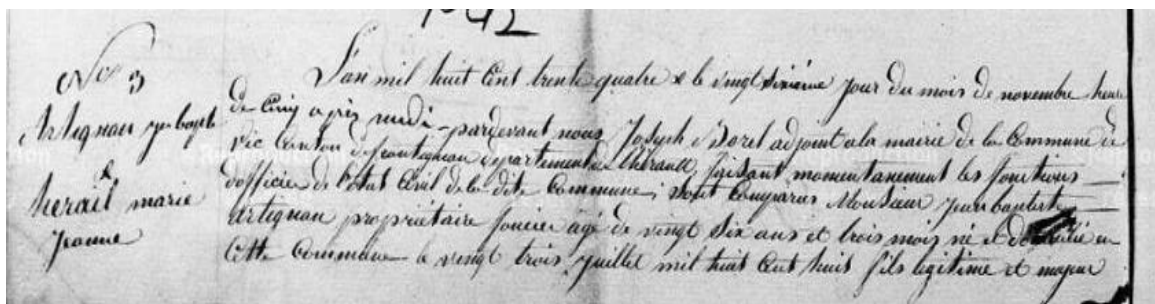 1042
N° 3
Artignan jean baptte
&
herail marie
jeanne
L'an mil huit Cent trente quatre & le vingt sixième jour du mois de novembre heure
de Cinq après midi - pardevant nous Joseph Borel adjoint a la mairie de la Commune de
Vic Canton de frontignan département de l'hérault, faisant momentanement les fonctions
d'officier de l'état Civil de la dite Commune ; sont Comparus Monsieur jean baptiste
artignan propriétaire foncier âgé de vingt six ans et trois mois né et domicilié en
Cette Commune le vingt trois juillet mil huit Cent huit fils legitime et majeur